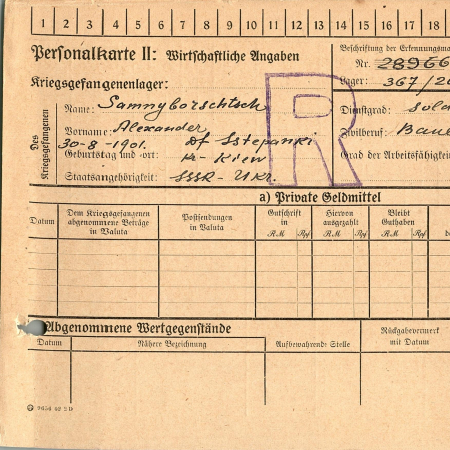 1 2 3 4 5 6 7 8 9 10 11 12 13 14 15 16 17 18
Personalkarte II: Wirtschaftliche Angaben
Beschriftung der Erkennungsma
Nr. 28966
Lager: 367/
Kriegsgefangenenlager:
Des Kriegsgefangenen
Name: Samnyborschtsch
Vorname: Alexander
30-8-1901. Df Sstepanki
Geburtstag und -ort: Kr. Kiew
Staatsangehörigkeit: SSSR - Ukr.
R
Dienstgrad: Sold
Zivilberuf: Baue
Grad der Arbeitsfähigkei
a) Private Geldmittel
Datum
Dem Kriegsgefangenen abgenommene Beträge in Valuta
Postsendungen in Valuta
Gutschrift in
RM Rpf
Hiervon ausgezahlt
RM Rpf
Bleibt Guthaben
RM Rpf
Abgenommene Wertgegenstände
Rückgabevermerk mit Datum
Datum
Nähere Bezeichnung
Aufbewahrende Stelle